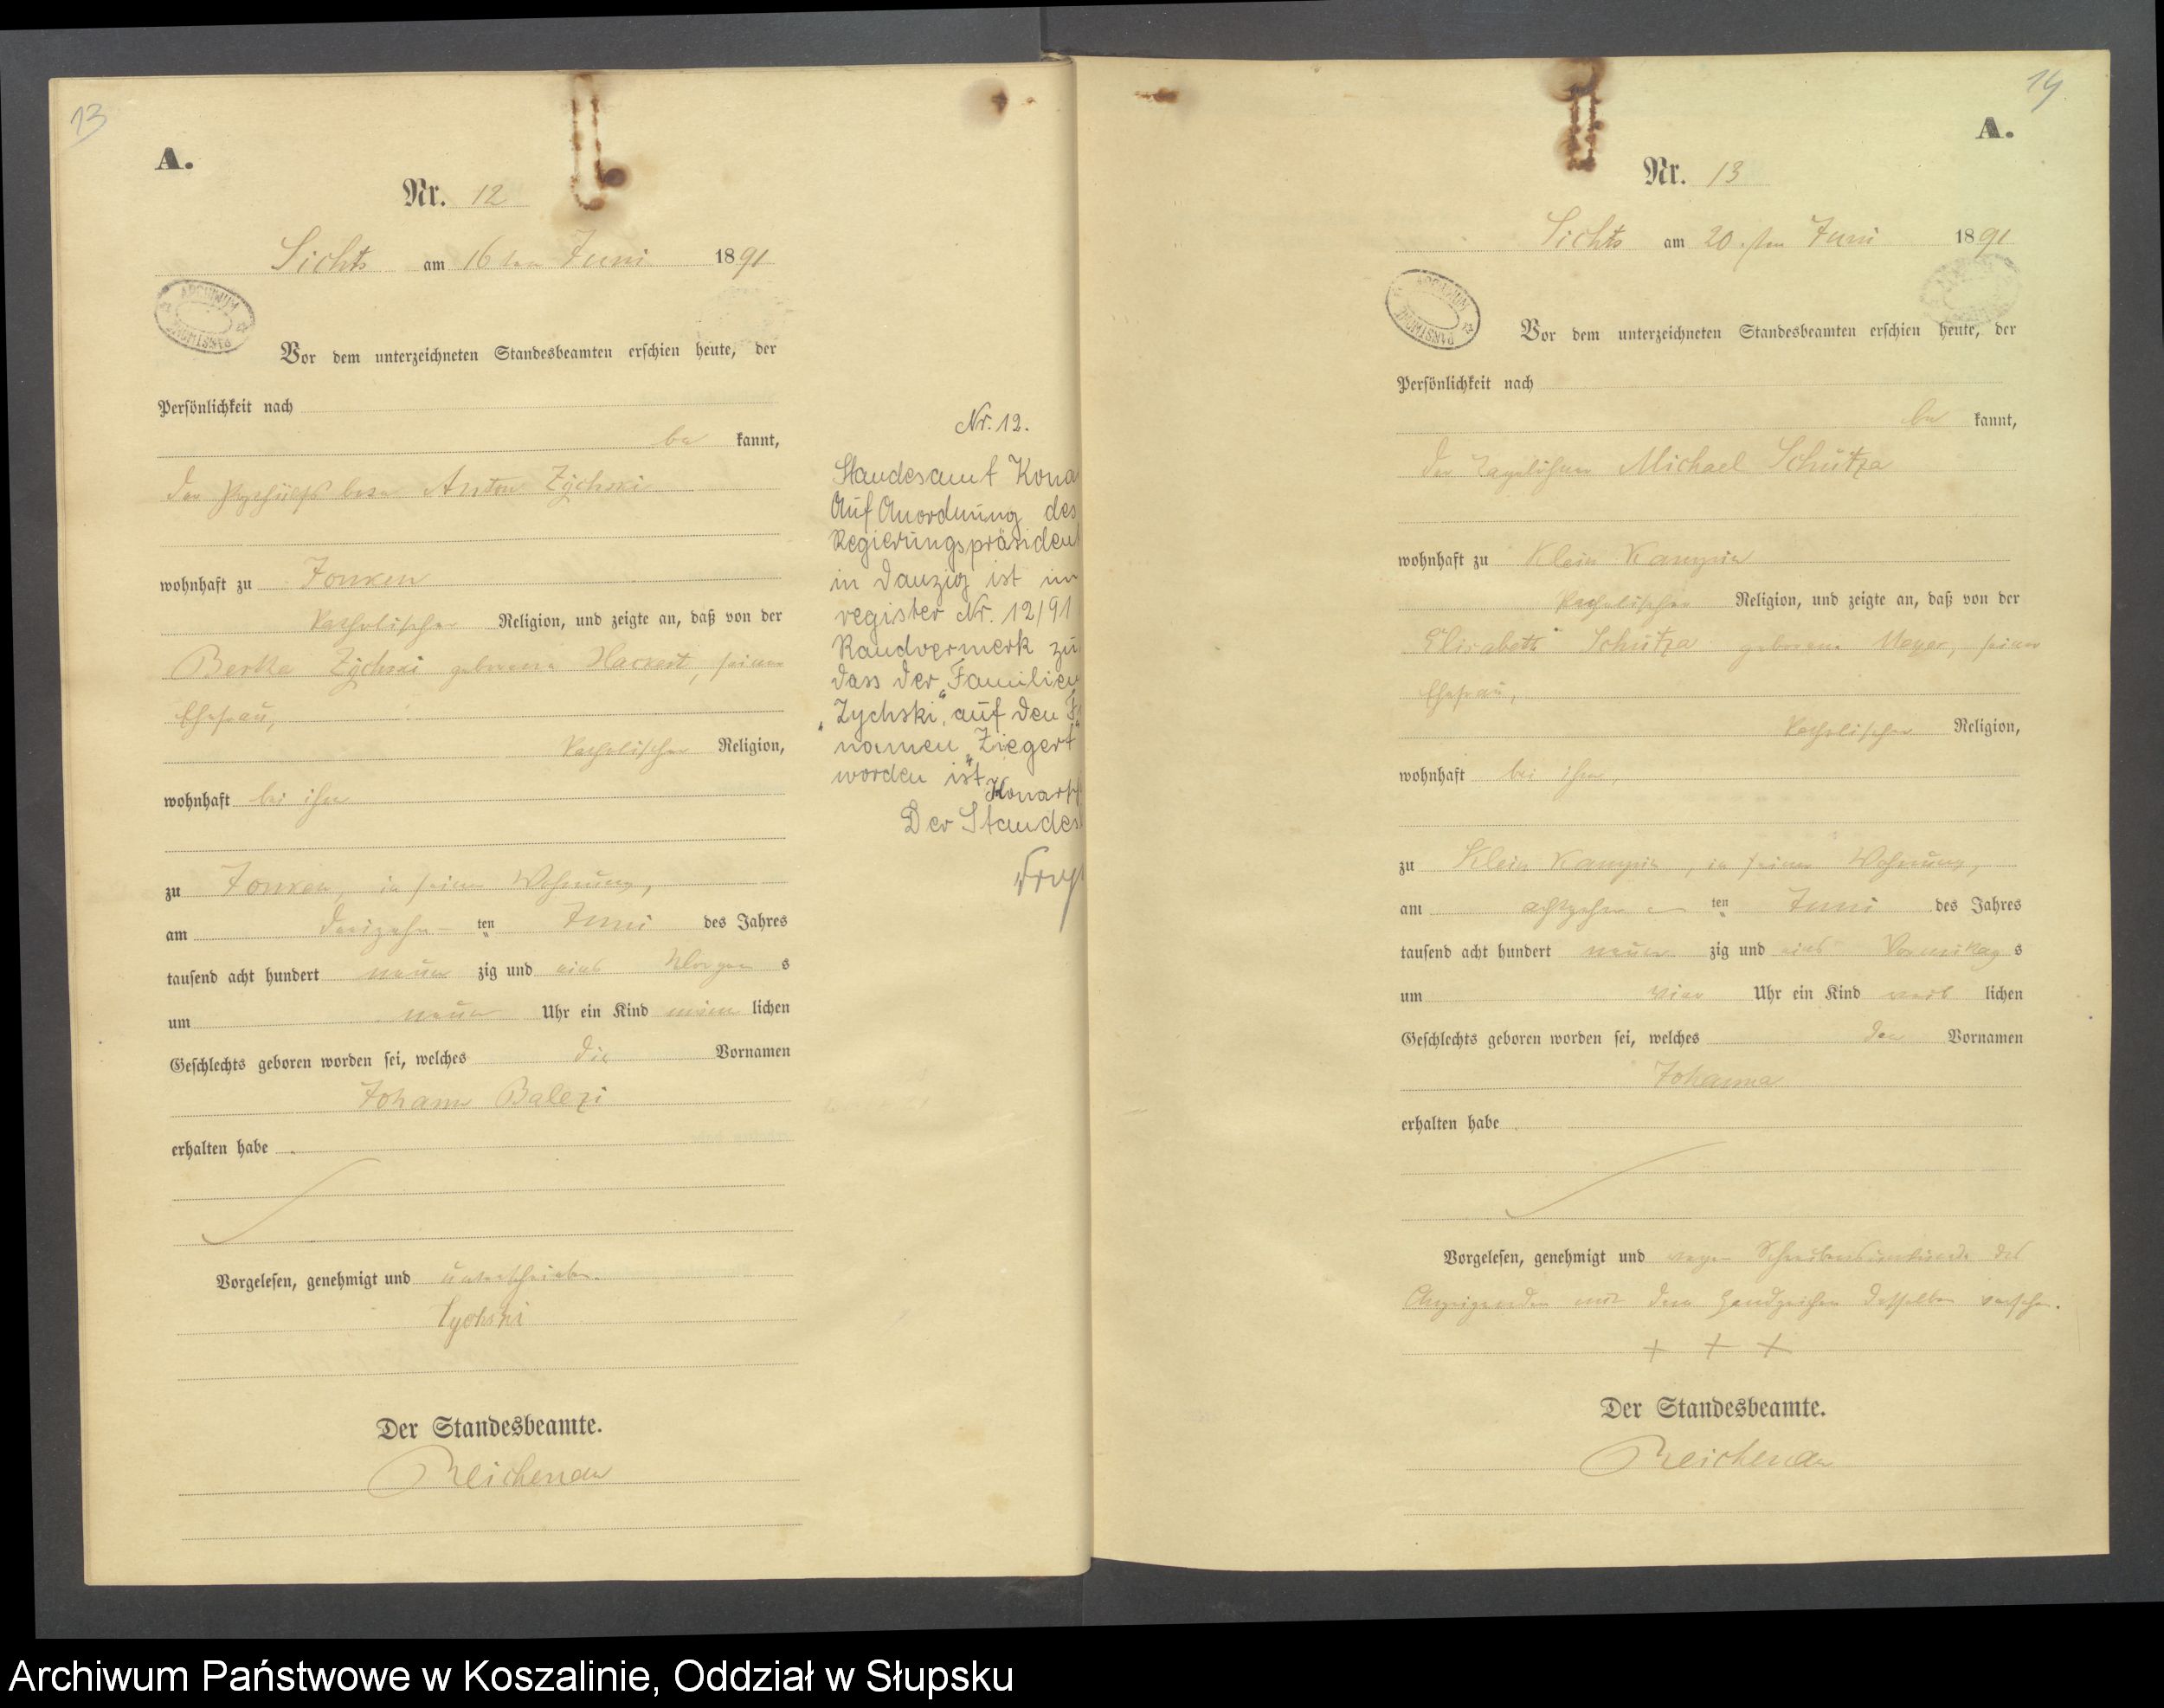 13
A.
Nr. 12
Sichts am 16ten Juni 1891
ARCHIWUM PAŃSTWOWE
Vor dem unterzeichneten Standesbeamten erschien heute, der
Persönlichkeit nach
be kannt,
der Anton Zychski
wohnhaft zu Jonken
katholischer Religion, und zeigte an, daß von der
Bertha Zychski geborene Hackert, seiner
Ehefrau,
katholischer Religion,
wohnhaft bei ihm
zu Jonken, in seiner Wohnung,
am dreizehn ten Juni des Jahres
tausend acht hundert neun zig und eins Morgen s
um neun Uhr ein Kind männ lichen
Geschlechts geboren worden sei, welches die Vornamen
Johann
erhalten habe
Vorgelesen, genehmigt und unterschrieben.
Zychski
Der Standesbeamte.
Reichenau
Nr. 12.
Standesamt Kona
Auf Anordnung des
Regierungspräsident
in Danzig ist im
register Nr. 12/91
Randvermerk zu
dass der Familien
"Zychski", auf den F
namen "Ziegert"
worden ist.
Konars
Der Standes
14
A.
Nr. 13
Sichts am 20.sten Juni 1891
ARCHIWUM PAŃSTWOWE
Vor dem unterzeichneten Standesbeamten erschien heute, der
Persönlichkeit nach
be kannt,
der Tagelöhner Michael Schütza
wohnhaft zu Klein Kampin
katholischer Religion, und zeigte an, daß von der
Elisabeth Schütza geborene Meyer, seiner
Ehefrau,
katholischer Religion,
wohnhaft bei ihm,
zu Klein Kampin, in seiner Wohnung,
am achtzehn ten Juni des Jahres
tausend acht hundert neun zig und eins Vormittag s
um vier Uhr ein Kind weib lichen
Geschlechts geboren worden sei, welches den Vornamen
Johanna
erhalten habe
Vorgelesen, genehmigt und wegen Schreibensunkunde des
Anzeigenden mit dem Handzeichen desselben versehen.
+ + +
Der Standesbeamte.
Reichenau
Archiwum Państwowe w Koszalinie, Oddział w Słupsku